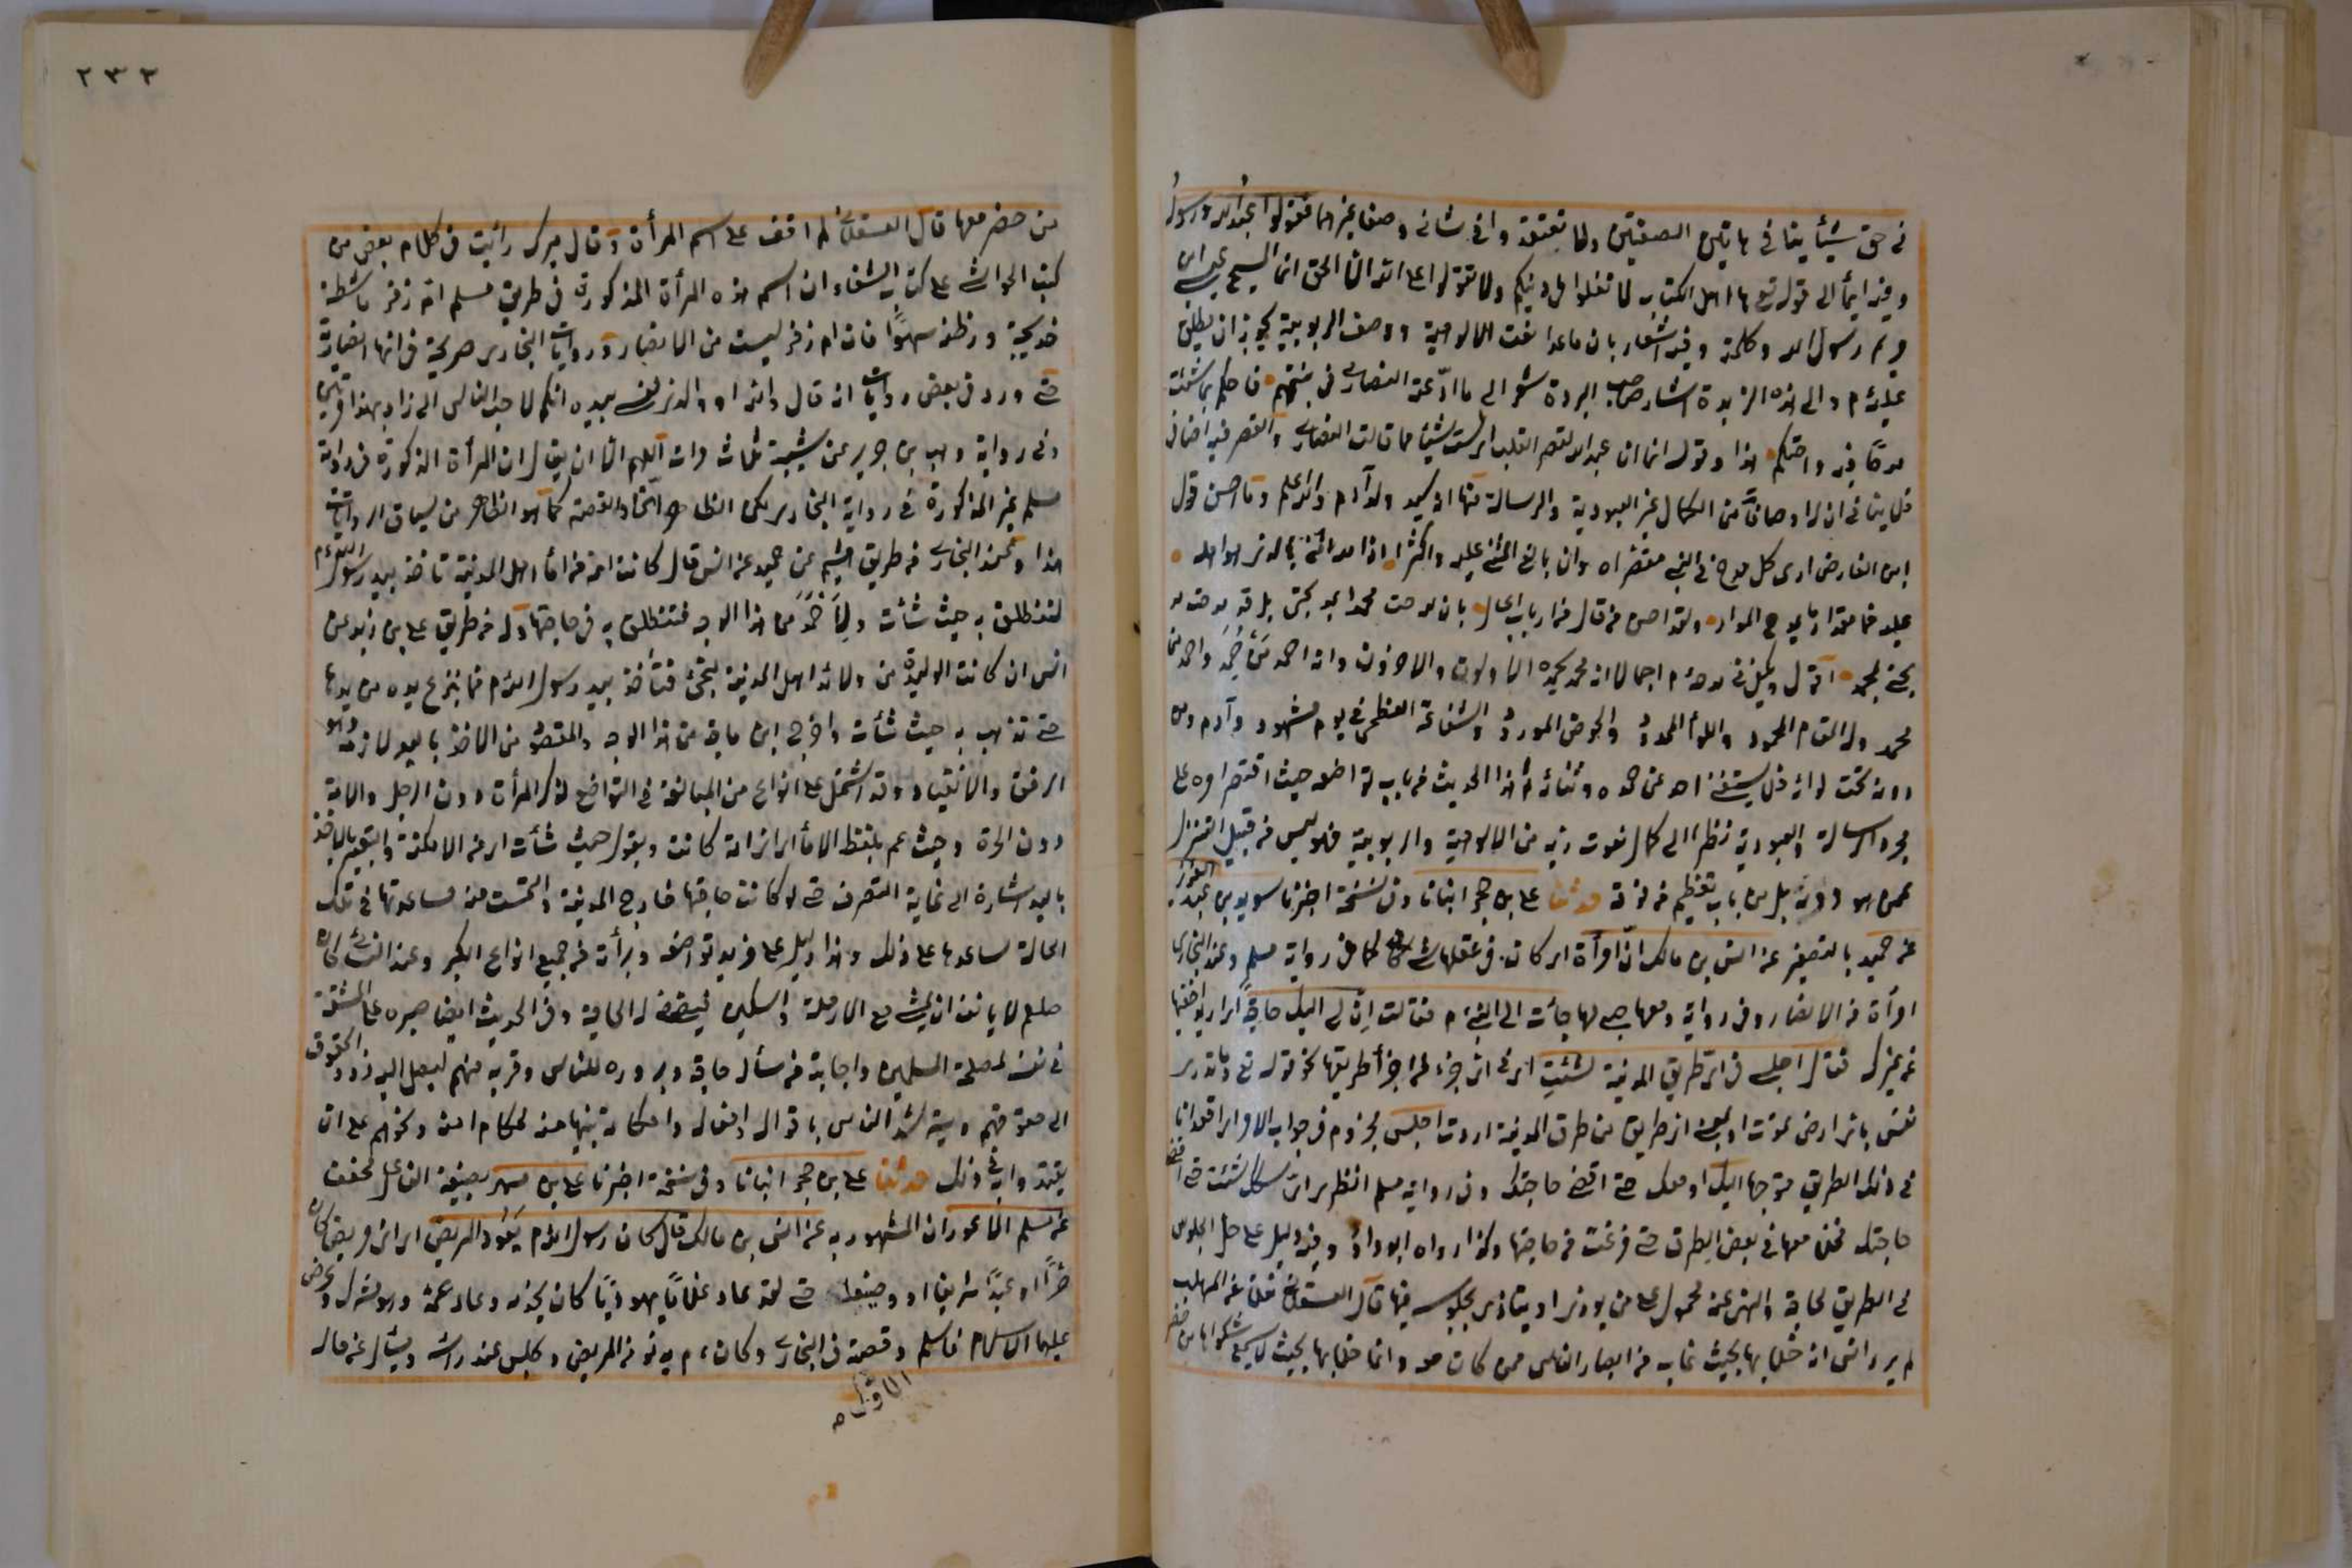 في حق شيئا ينافي هاتين الصفتين ولا تعتقدوا في شاني وصفا غيرهما فقولوا عبد الله ورسوله
وفيه ايمأ الى قوله تع يا اهل الكتاب لا تغلوا في دينكم ولا تقولوا على الله الا الحق انما المسيح عيسى ابن
مريم رسول الله وكلمته وفيه اشعار بان ماعدا نعت الالوهية ووصف الربوبية يجوز ان يطلق
عليه م والى هذه الزبدة اشار صاحب البردة شعر الى ما ادّعته النصارى في نبيهم فاحكم بما شئت
مدحًا فيه واحتكم هذا وقوله انما انا عبد الله لقصر القلب اي لست شيئا مما قالت النصارى والقصر فيه اضافي
فلا ينافي ان له اوصافًا من الكمال غير العبودية والرسالة منها انه سيد ولد آدم والله اعلم وما احسن قول
ابن الفارض ارى كل مدح في النبي مقصّرا وان بالغ المثني عليه واكثرا اذا الله اثنى بالذي هو اهله
عليه فما مقدار ما يمدح الورى ولقد احسن من قال من ارباب الحال ما ان مدحت محمدا بمديحتي بل قد مدحت مد
يحتي بمحمد اقول ويكفي في مدحه م اجمالا انه محمد يحمده الاولون والاخرون وانه احمد مَن حُمِدَ واحمد من
محمد وله المقام المحمود واللوأ الممدود والحوض المورود والشفاعة العظمى في يوم مشهود وآدم ومن
دونه تحت لوائه فلا يستغني احد عن حمده وثنائه ثم هذا الحديث من باب تواضعه حيث اقتصر امره على
مجرد الرسالة والعبودية نظرا الى كمال نعوت ربه من الالوهية والربوبية فليس من قبيل التنزل
عمن هو دونه بل من باب تعظيم من فوقه حدثنا علي بن حجر انبانا وفي نسخة اخبرنا سويد بن عبد العزيز
عن حميد بالتصغير عن انس بن مالك انّ امرأة اي كان في عقلها شيء كما في رواية مسلم وعند البخاري
امرأة من الانصار وفي رواية ومعها صبي لها جأت الى النبي م فقالت ان لي اليك حاجةً اي اريد اخفيها
عن غيرك فقال اجلسي في اي طريق المدينة شئتِ اي في اي جزء من اجزأ طريقها نحو قوله تع وما تدري
نفس باي ارض تموت او بمعنى اي طريق من طرق المدينة اردت اجلس مجزوم في جواب الامر اي اقعد انا
في ذلك الطريق متوجها اليك او معك حتى اقضي حاجتك وفي رواية مسلم انظري اي السكك شئت حتى اقضي
حاجتك فخلا معها في بعض الطرق حتى فرغت من حاجتها وكذا رواه ابو داود وفيه دليل على حل الجلوس
في الطريق لحاجة والنهي عنه محمول على من يوذي او يتاذى بجلوسه فيها قال العسقلاني نقلا عن المهلب
لم يرد انس انه خلا بها بحيث غاب عن ابصار الناس ممن كان معه وانما خلا بها بحيث لا يسمع شكواها من حضر
٢٣٢
من حضر معها قال العسقلاني لم اقف على اسم المرأة وقال ميرك رأيت في كلام بعض من
كتب الحواشي على كتاب الشفاء ان اسم هذه المرأة المذكورة في طريق مسلم ام زفر ماشطة
خديجة واظنه سهوًا فان ام زفر ليست من الانصار وروايات البخاري صريحة في انها انصارية
حتى ورد في بعض رواياته انه قال والله او والذي نفسي بيده انكم لاحب الناس الي زاد بهذا مرتين
وفي رواية وهب بن جرير عن شعبة ثلاث مرات اللهم الا ان يقال ان المرأة المذكورة في رواية
مسلم غير المذكورة في رواية البخاري لكن الظاهر اتحاد القصة كما هو الظاهر من سياق الروايات
هذا وعند البخاري من طريق هشيم عن حميد عن انس قال كانت امة من اماء اهل المدينة تاخذ بيد رسول الله م
لتنطلق به حيث شأت ولاحمد من هذا الوجه فتنطلق به في حاجتها وله من طريق علي بن زيد عن
انس ان كانت الوليدة من ولائد اهل المدينة لتجئ فتأخذ بيد رسول الله م فما ينزع يده من يدها
حتى تذهب به حيث شأت واخرج ابن ماجة من هذا الوجه والمقصود من الاخذ باليد لازمه وهو
الرفق والانقياد وقد اشتمل على انواع من المبالغة في التواضع لذكر المرأة دون الرجل والامة
دون الحرة وحيث عم بلفظ الاماء اي اي امة كانت وبقوله حيث شأت اي من الامكنة والتعبير بالاخذ
باليد اشارة الى غاية التصرف حتى لو كانت حاجتها خارج المدينة والتمست منه مساعدتها في تلك
الحالة لساعدها على ذلك وهذا دليل على مزيد تواضعه وبرأته من جميع انواع الكبر وعند النسائي كان
صلعم لا يانف ان يمشي مع الارملة والمسكين فيقضي له الحاجة وفي الحديث ايضا صبره على المشقة
في نفسه لمصلحة المسلمين واجابة من سأله حاجة وبروزه للناس وقربه منهم ليصل اليه ذوو الحقوق
الى حقوقهم ويسترشد الناس باقواله وافعاله واحكامه تنبيها منه لحكام امته ونحوهم على ان
يقتدوا به في ذلك حدثنا علي بن حجر انبانا وفي نسخة اخبرنا علي بن مسهر بصيغة الفاعل مخففا
عن مسلم الاعور ان المشهور به عن انس بن مالك قال كان رسول الله م يَعُود المريض اي اي مريض كان
حرًّا او عبدًا شريفا او وضيعا حتى لقد عاد غلامًا يهوديًا كان يخدمه وعاد عمه وهو مشرك وعرض
عليهما الاسلام فاسلم الاول وقصته في البخاري وكان م يدنو من المريض ويجلس عند راسه ويسأل عن حاله